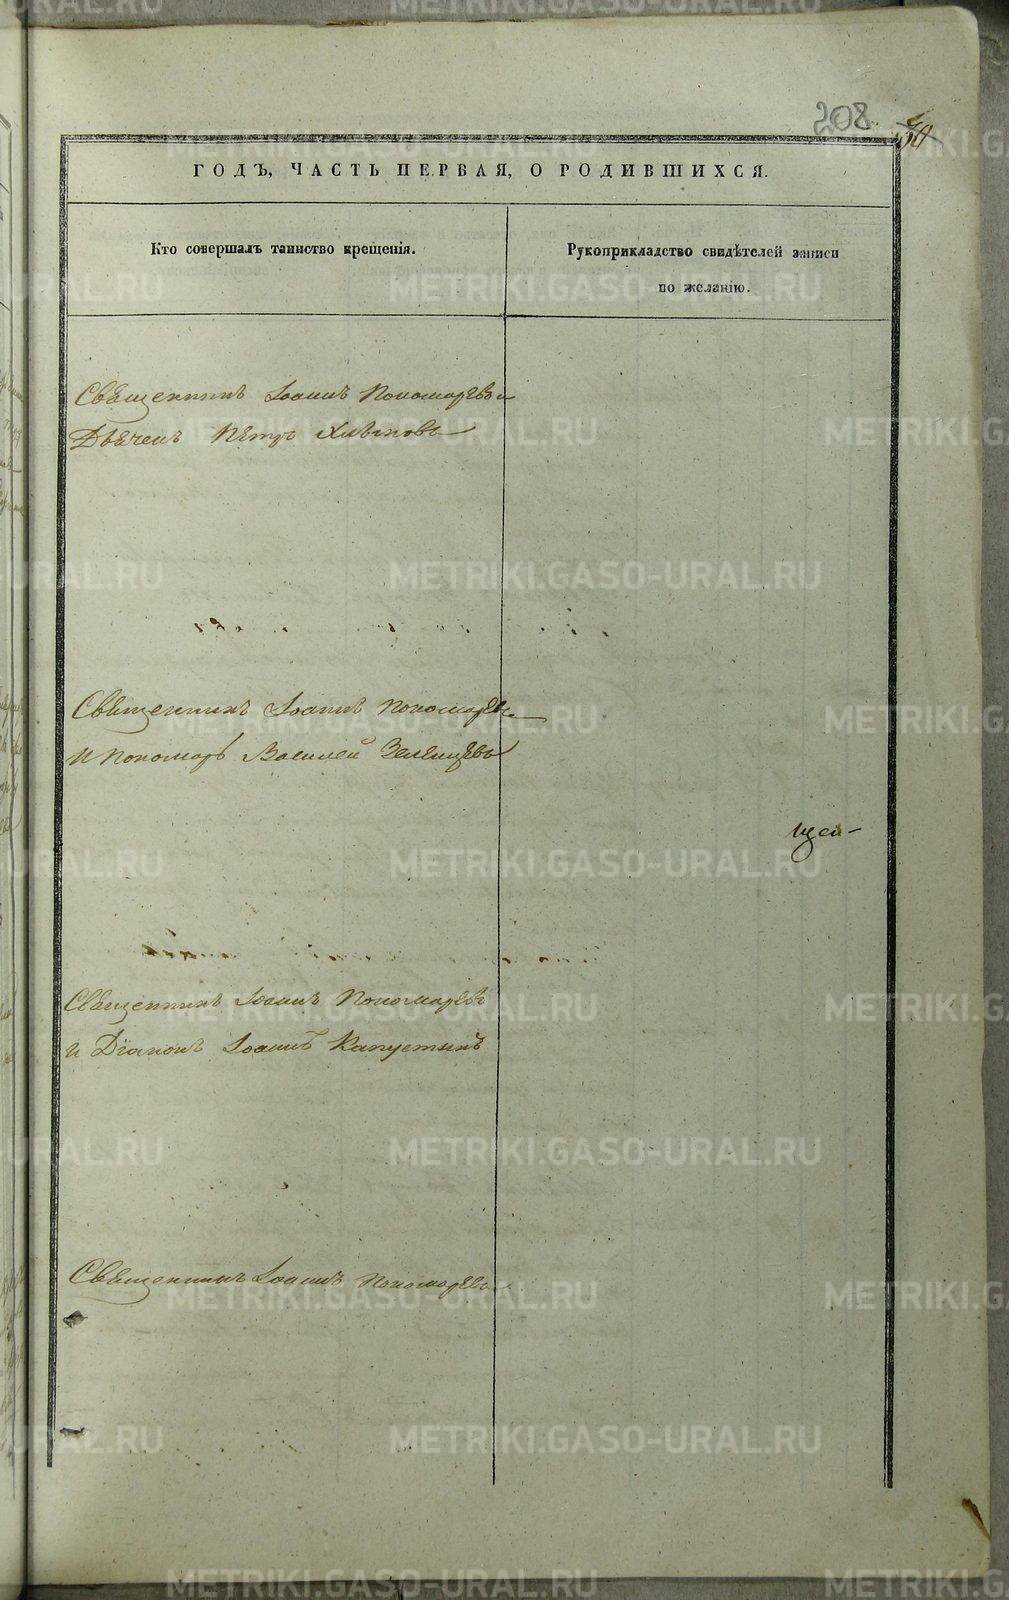 208
ГОДЪ, ЧАСТЬ ПЕРВАЯ, О РОДИВШИХСЯ.
Кто совершалъ таинство крещенія.
Рукоприкладство свидѣтелей записи
по желанію.
Священникъ Іоаннъ Пономаревъ и
Дьячекъ Петръ Хлѣповъ
Священникъ Іоаннъ Пономаревъ
И пономарь Василей Зеленцевъ
щеи-
Священникъ Іоаннъ Пономаревъ
и Діаконъ Іоаннъ Капустинъ
Священникъ Іоаннъ Пономаревъ
METRIKI.GASO-URAL.RU